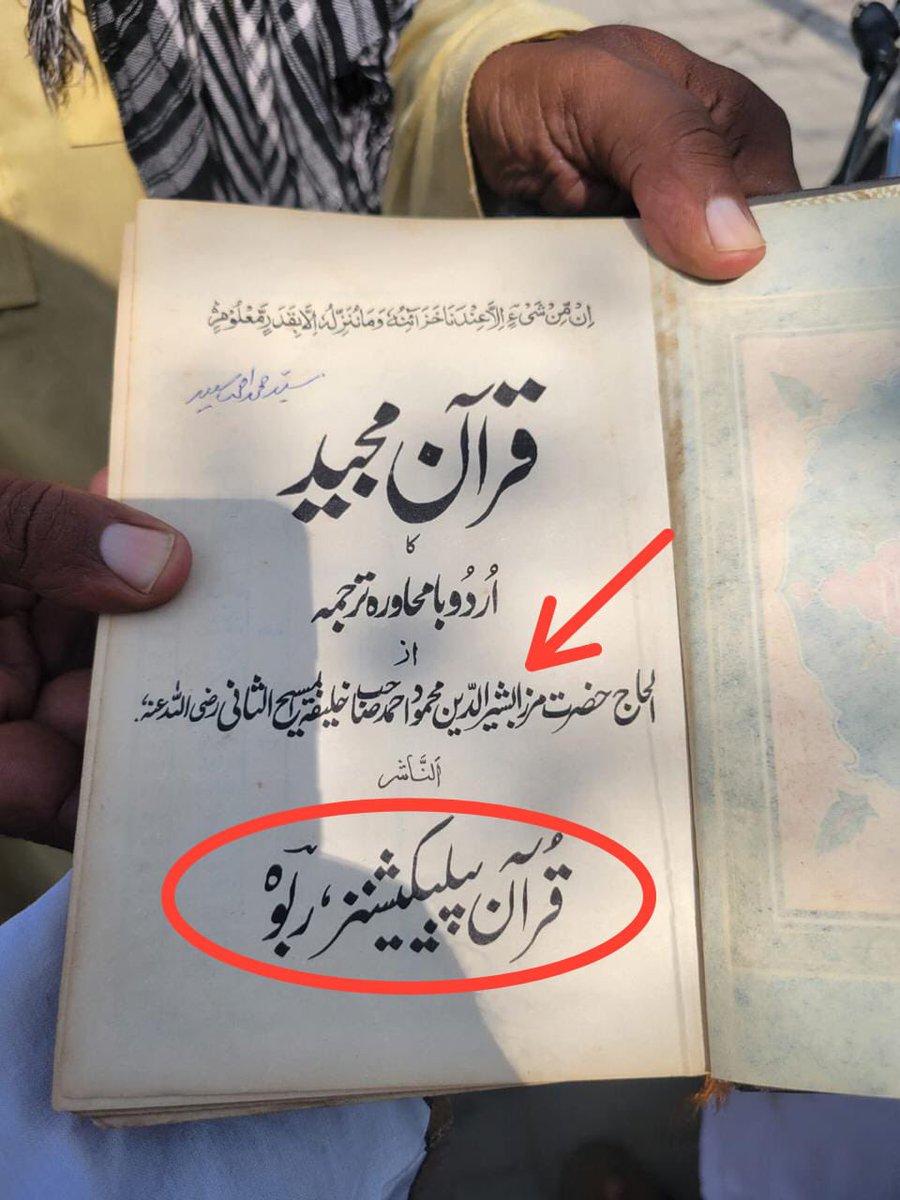 اِنْ مِّنْ شَیْءٍ اِلَّا عِنْدَنَا خَزَآئِنُهٗ وَمَا نُنَزِّلُهٗ اِلَّا بِقَدَرٍ مَّعْلُوْمٍ
سید
قرآن مجید
کا
اُردُو بامحاورہ ترجمہ
از
الحاج حضرت مرزا بشیر الدّین محمود احمد صاحب خلیفۃ المسیح الثانی رضی اللہ عنہ
اَلنَّاشر
قُرآن پبلیکیشنز، ربوہ